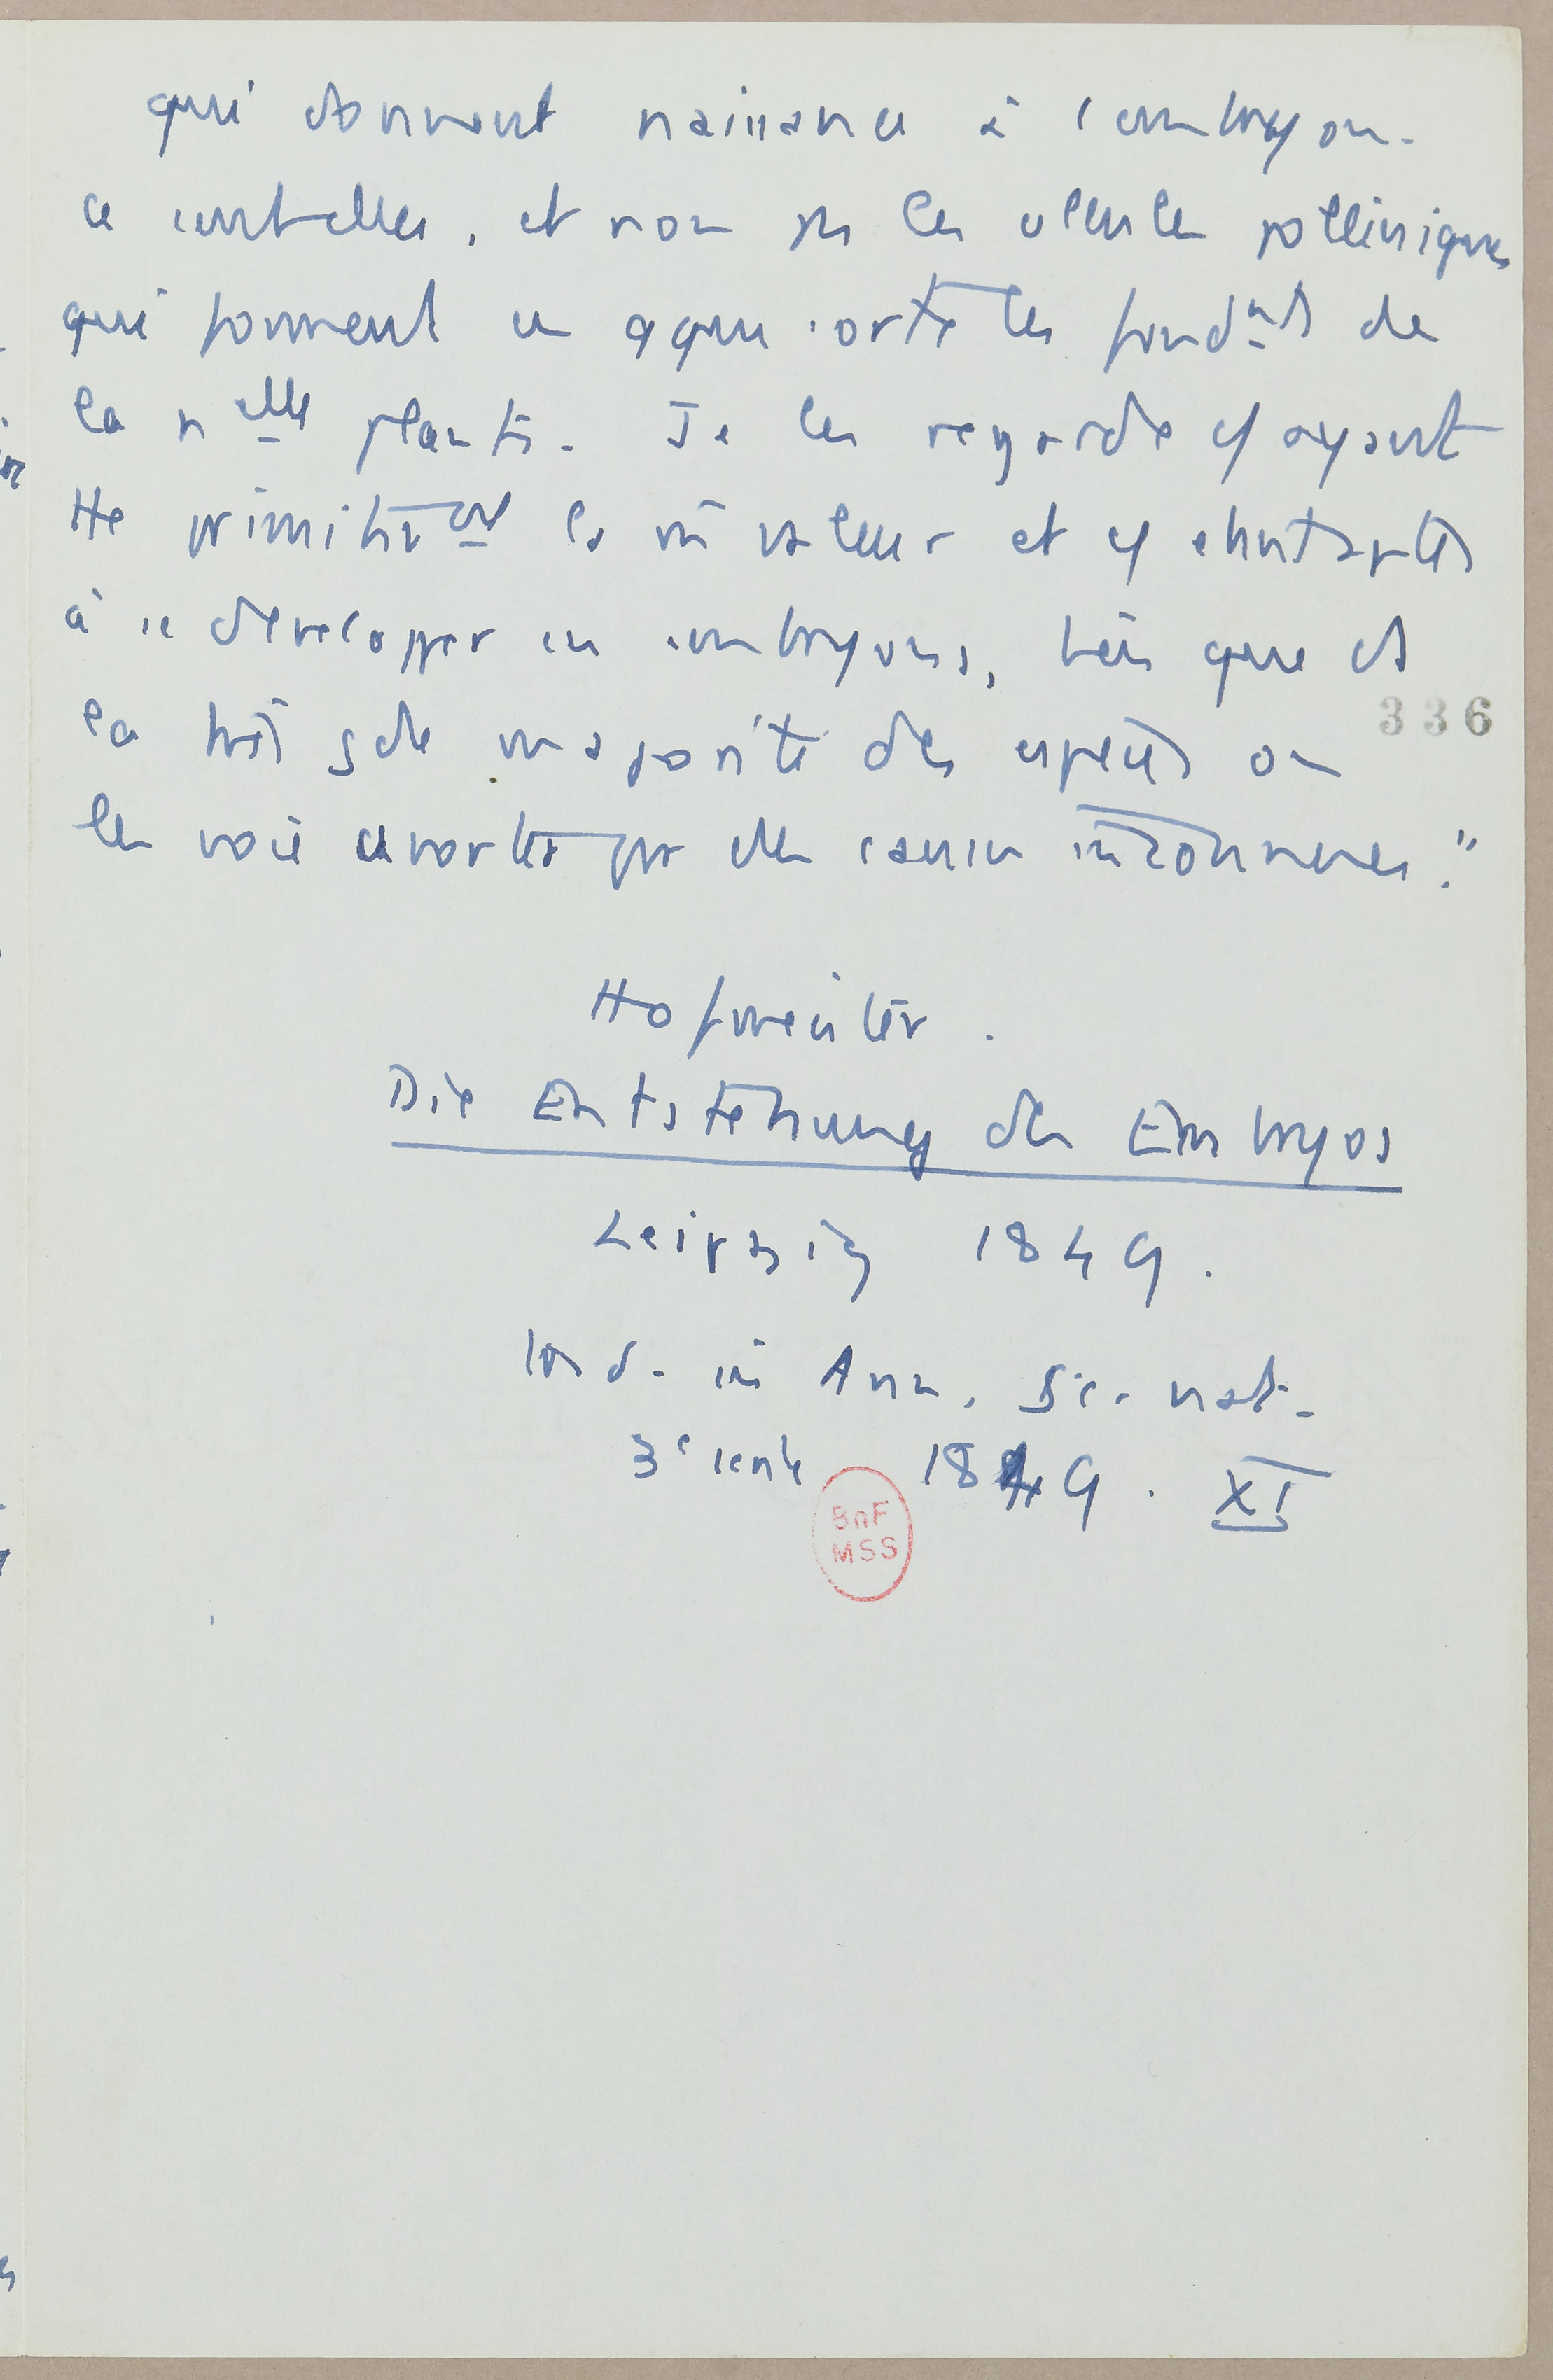 qui donnent naissance à l'embryon.
ce sont elles, et non pas les cellules polliniques
qui forment en qque sorte les fondnts de
la nelle plante. Je les regarde cf ayant
tte primitivt la m valeur et cf charts aptes
à se développer en embryons, bien que ds
la très gde majorité des espèces on
les voie avorter par des causes inconnues."
336
Hofmeister.
Die Entstehung des Embryos
Leipzig 1849.
trad. in Ann. Sc. nat.
3e série 1849. XI
BnF
MSS